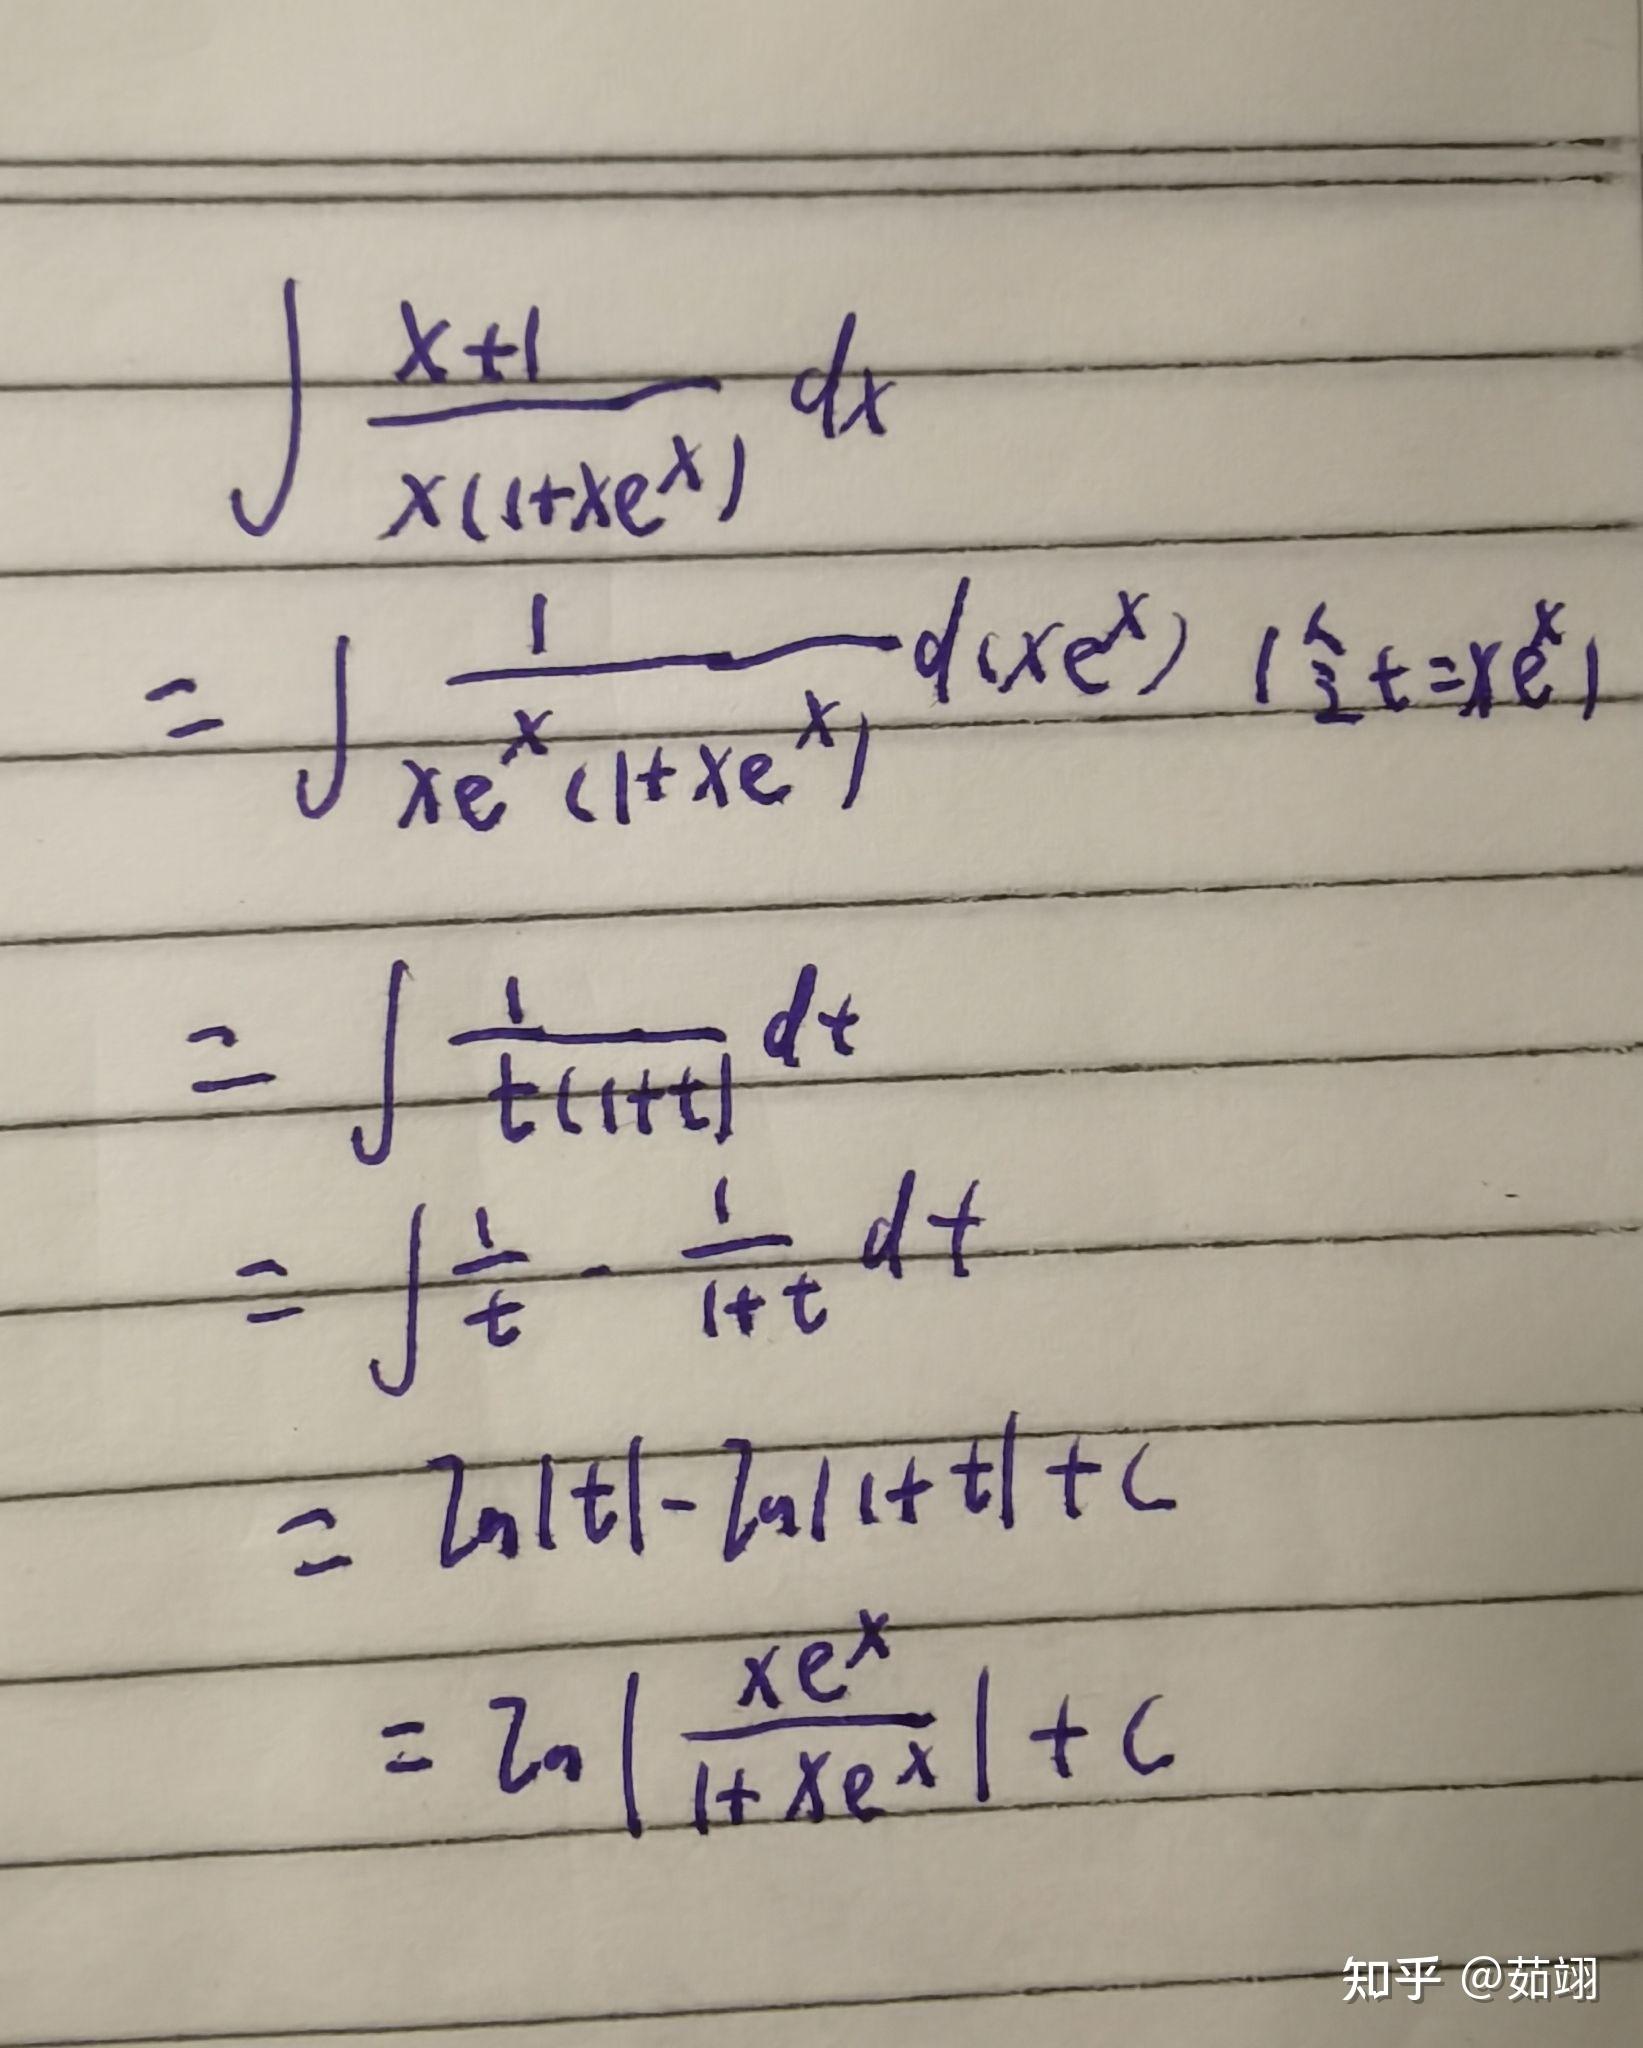 ∫ \frac{x+1}{x(1+xe^x)} dx
= ∫ \frac{1}{xe^x(1+xe^x)} d(xe^x) (令t=xe^x)
= ∫ \frac{1}{t(1+t)} dt
= ∫ \frac{1}{t} - \frac{1}{1+t} dt
= ln|t| - ln|1+t| + C
= ln|\frac{xe^x}{1+xe^x}| + C
知乎 @茹翊